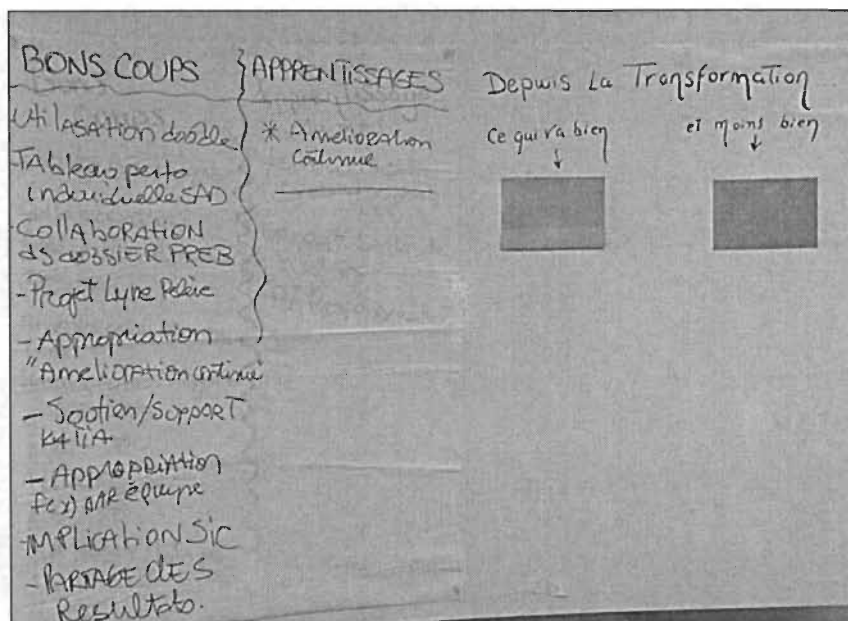 BONS COUPS
Utilasation doodle
Tableau perfo
individuelle SAD
- Collaboration
ds dossier PREB
- Projet Lyne
- Appropriation
"Amelioration continue"
- Soutien/support
- Appropriation
f(x) par équipe
- Implication SIC
- Partage des
Resultats.
APPRENTISSAGES
* Amelioration
continue
Depuis La Transformation
Ce qui va bien
et moins bien